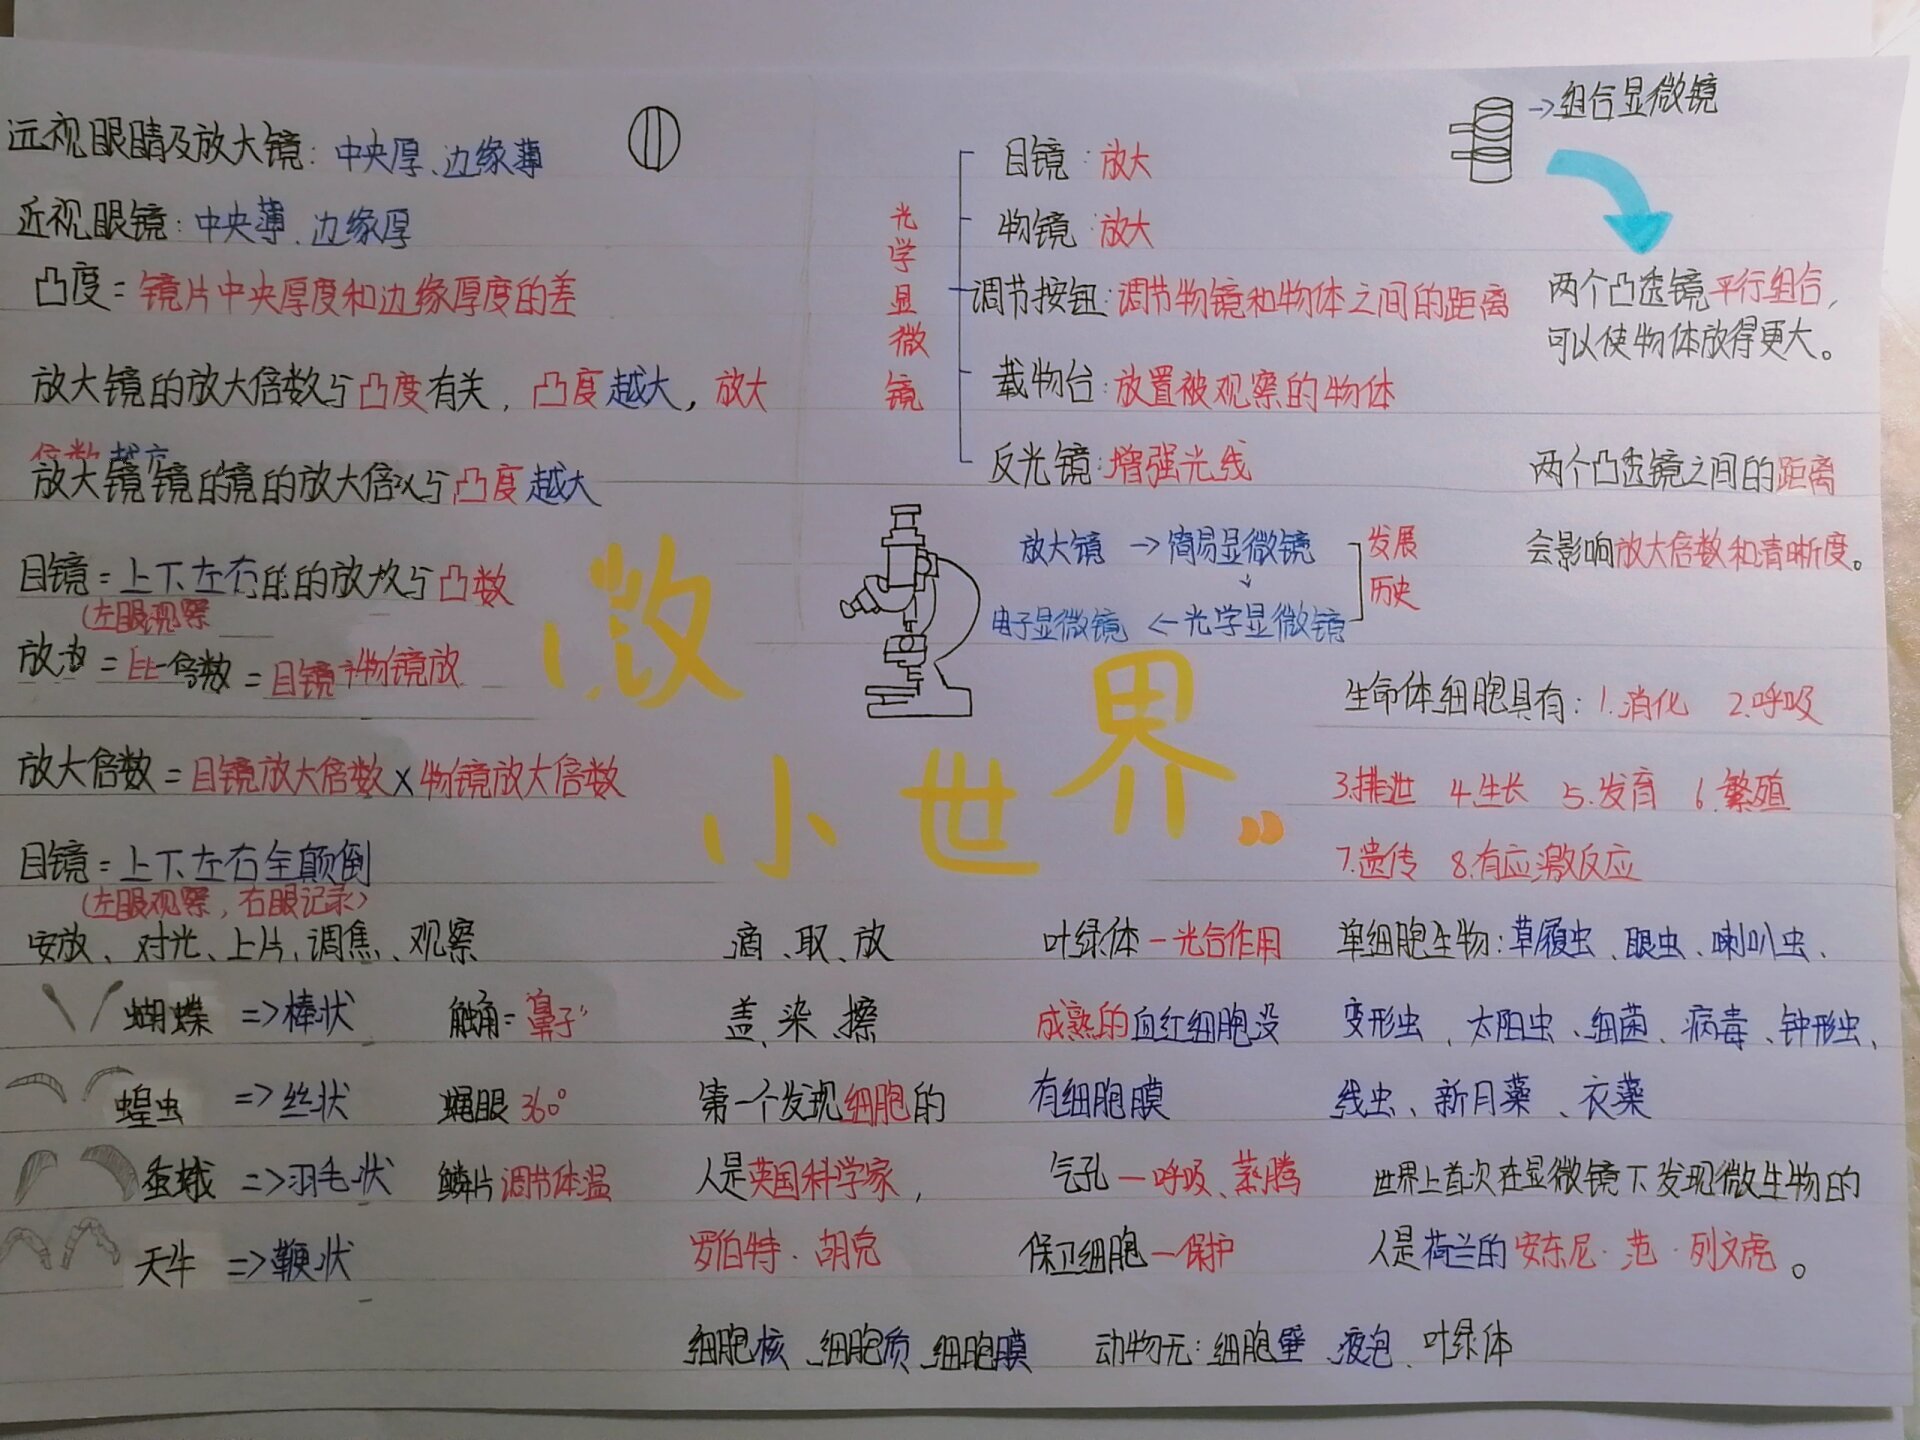 远视眼睛及放大镜：中央厚、边缘薄
近视眼镜：中央薄、边缘厚
凸度=镜片中央厚度和边缘厚度的差
放大镜的放大倍数与凸度有关，凸度越大，放大
倍数越
放大镜镜的镜的放大倍 与凸度越大
目镜=上下左右 的放 与凸数
(左眼观察
放 = 倍数=目镜 物镜放
放大倍数=目镜放大倍数×物镜放大倍数
目镜=上下左右全颠倒
(左眼观察，右眼记录)
安放、对光、上片、调焦、观察
蝴蝶=>棒状
蝗虫=>丝状
蚕蛾=>羽毛状
天牛=>鞭状
触角="鼻子"
蝇眼360°
鳞片调节体温
光学显微镜
目镜：放大
物镜：放大
调节按钮：调节物镜和物体之间的距离
载物台：放置被观察的物体
反光镜：增强光线
放大镜→简易显微镜
↓
电子显微镜←光学显微镜
发展
历史
→组合显微镜
两个凸透镜平行组合，
可以使物体放得更大。
两个凸透镜之间的距离
会影响放大倍数和清晰度。
微
小世界
生命体细胞具有：1.消化 2.呼吸
3.排泄 4.生长 5.发育 6.繁殖
7.遗传 8.有应激反应
滴、取、放
盖、染、擦
第一个发现细胞的
人是英国科学家，
罗伯特·胡克
叶绿体—光合作用
成熟的血红细胞没
有细胞膜
气孔—呼吸、蒸腾
保卫细胞—保护
单细胞生物：草履虫、眼虫、喇叭虫、
变形虫、太阳虫、细菌、病毒、钟形虫、
线虫、新月藻、衣藻
世界上首次在显微镜下发现微生物的
人是荷兰的安东尼·范·列文虎。
细胞核、细胞质、细胞膜
动物无：细胞壁、液泡、叶绿体